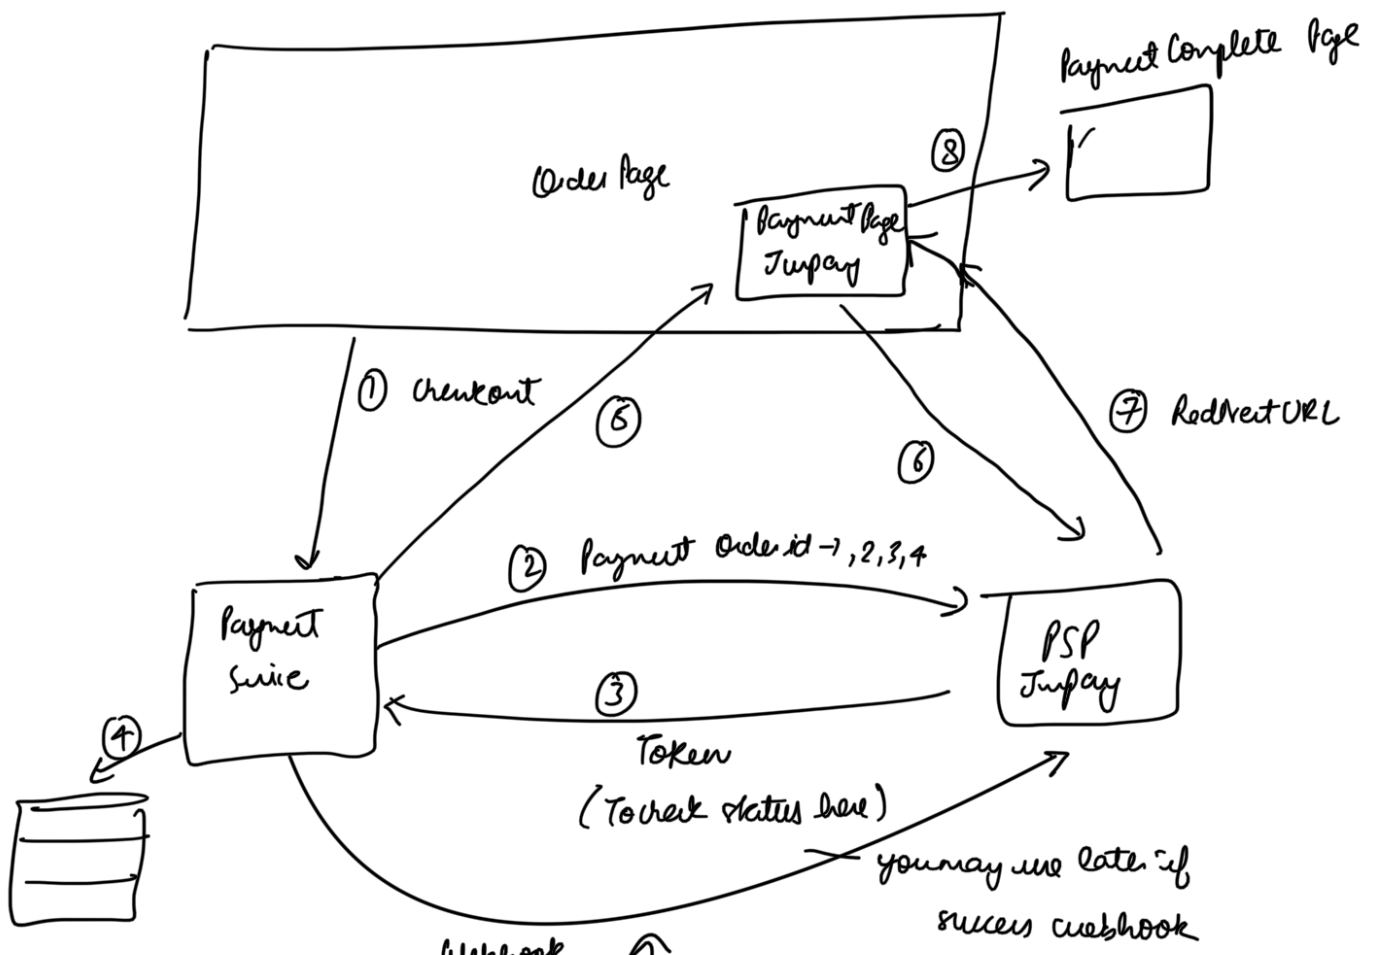 Payment Complete Page
8
Order Page
Payment Page
Juspay
1 Checkout
5
6
7 Redirect URL
2 Payment Order id →, 2, 3, 4
Payment
PSP
Juspay
3
4
Token
(To check status here)
you may use later if
success webhook
Webhook